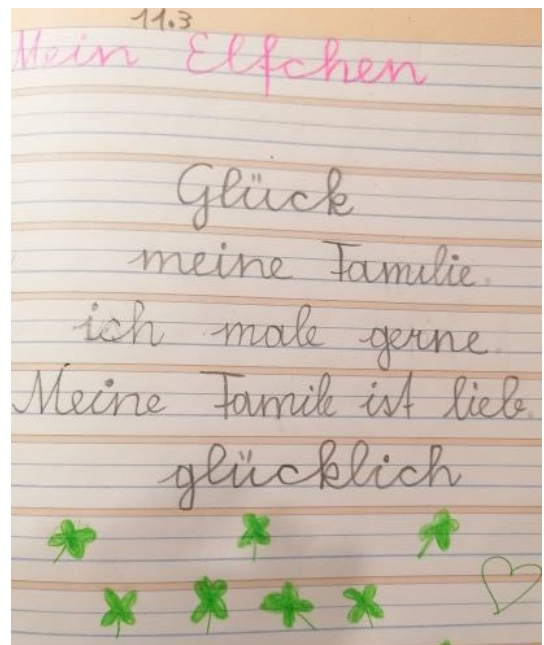 11.3
Mein Elfchen
Glück
meine Familie.
ich male gerne.
Meine Famile ist lieb.
glücklich